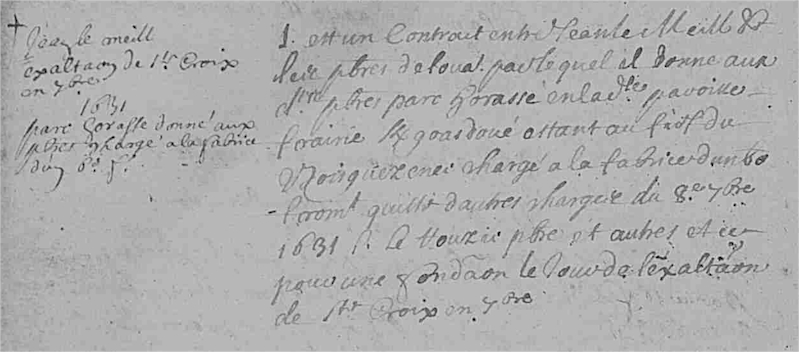 + Jean le meill
Exaltaon de Ste Croix
en 7bre
1631
parc Gorasse donné aux
pbres chargé a la fabrice
d'un bo. f.
1. est un Contract entre Jean le Meill &
les pbres de louat. par lequel il donne aux
d. pbres parc Gorasse en lad. paroisse
frairie goasdoué estant au fieff du
chargé a la fabrice d'un bo
from.t quitte d'autres charges du 8.e 7bre
1631 f. le Houzic pbre et autres et ce
pour une fondaon le Jour de l'exaltaon
de Ste Croix en 7bre